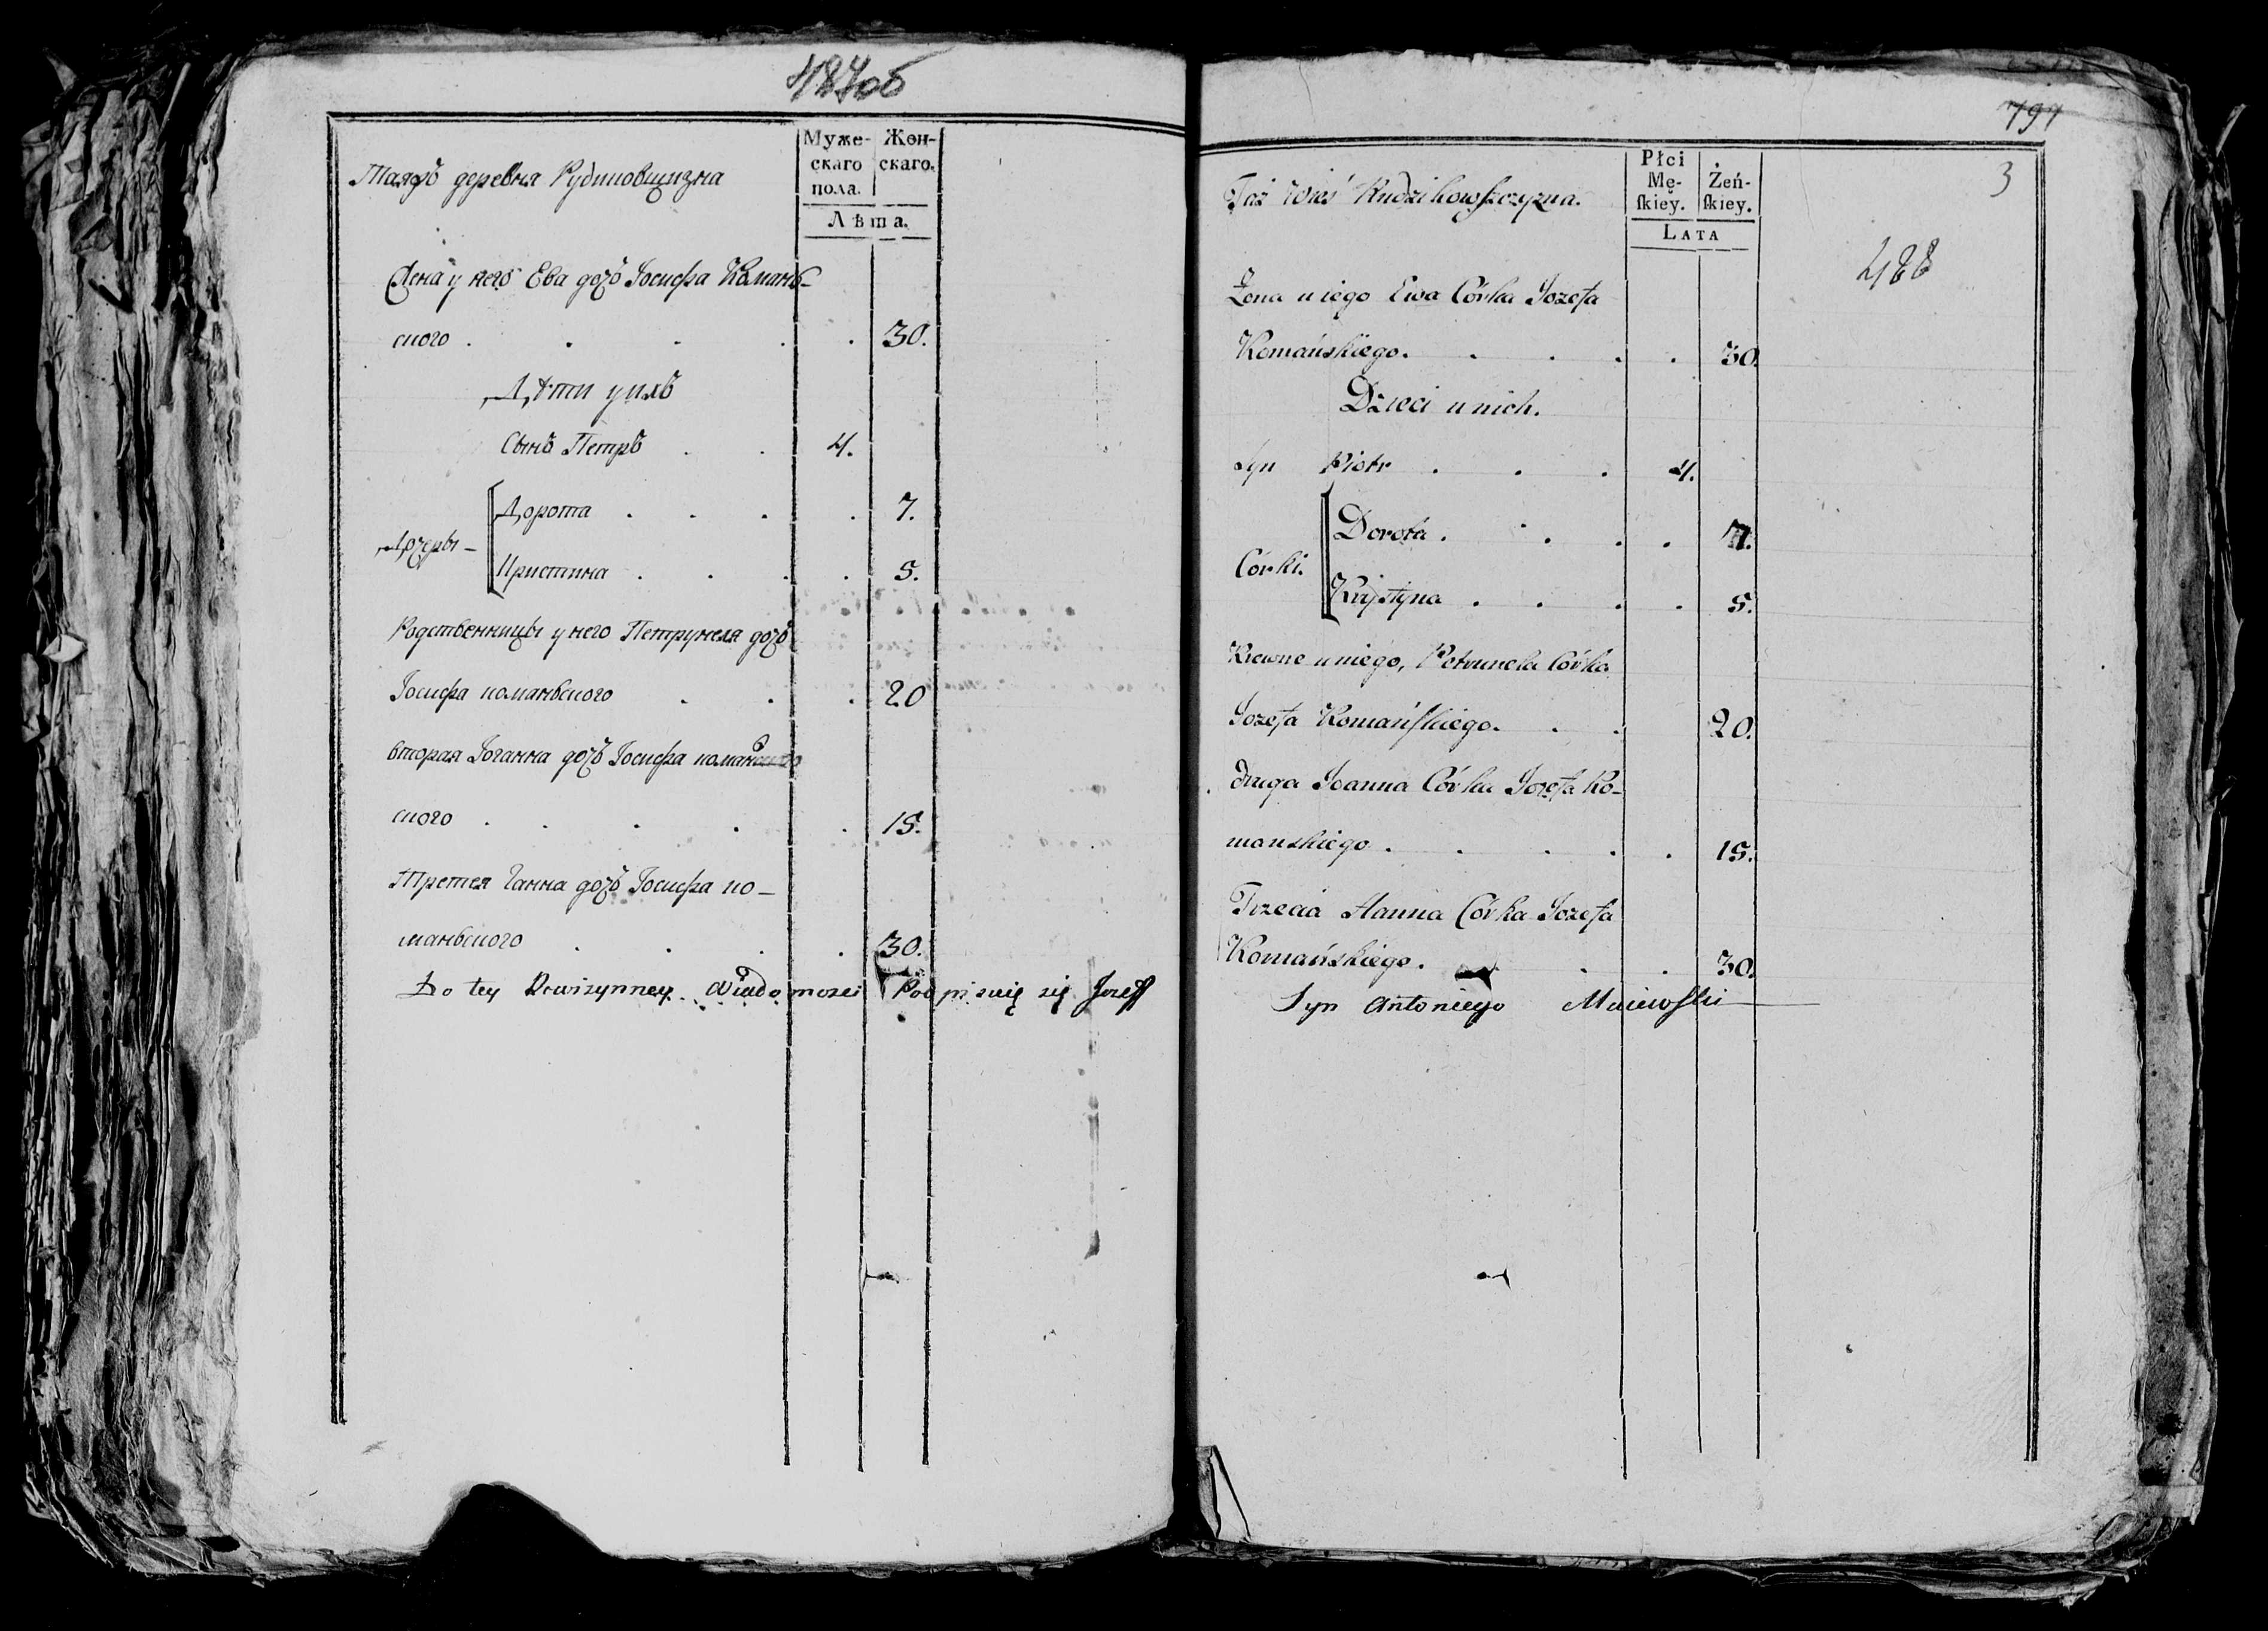 487об
Таяжъ деревня Рудиковщизна
Муже-
скаго
пола.
Жен-
скаго.
Лѣта.
Жена у него Ева дочь Іосифа Комань-
ского . . . . . 30.
Дѣти у ихъ
Сынъ Петръ . . 4.
Дочеры –
Дорота . . . . 7.
Кристина . . . . 5.
Родственницы у него Петрунеля дочь
Іосифа команьского . . . 20
вторая Іоганна дочь Іосифа комань
ского . . . . . 15.
Третея Ганна дочь Іосифа ко–
маньского . . . . 30.
Do tey Rewizynney Wiadomosci Podpisuię się Jozef
791
3
488
Taż Wieś Rudzikowszczyzna.
Płci
Mę-
ſkiey.
Żeń-
ſkiey.
LATA
Żona u iego Ewa Córka Jozefa
Komańskiego. . . . . 30.
Dzieci u nich.
Syn Piotr . . . 4.
Córki.
Dorota . . . . . 7.
Krystyna . . . . 5.
Krewne u niego, Petrunela Córka
Jozefa Komańſkiego. . . 20.
druga Joanna Córka Jozefa Ko-
manskiego . . . . . 15.
Trzecia Hanna Córka Jozefa
Komańskiego. . . 30.
Syn Antoniego Maiewſki